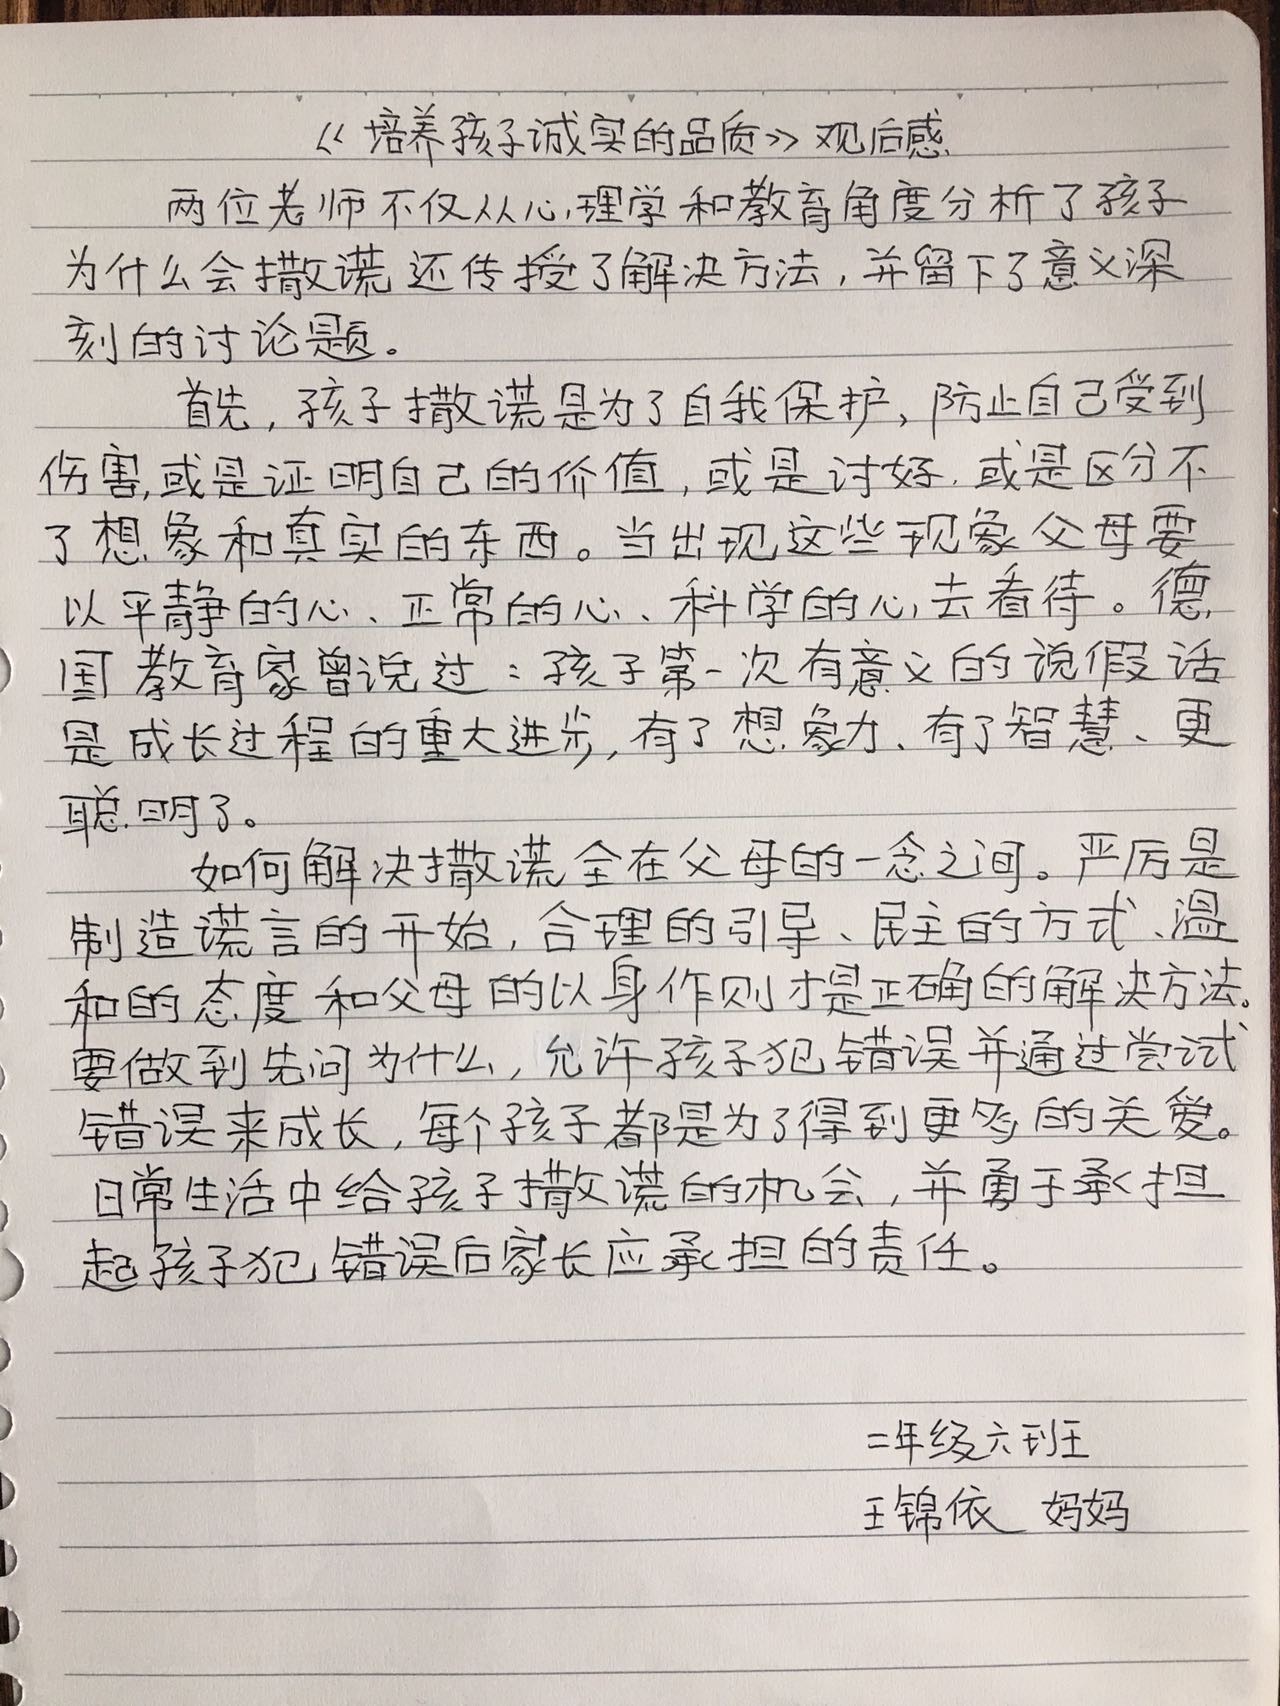 《培养孩子诚实的品质》观后感
两位老师不仅从心理学和教育角度分析了孩子
为什么会撒谎还传授了解决方法,并留下了意义深
刻的讨论题。
首先,孩子撒谎是为了自我保护,防止自己受到
伤害,或是证明自己的价值,或是讨好.或是区分不
了想象和真实的东西。当出现这些现象父母要
以平静的心、正常的心、科学的心去看待。德
国教育家曾说过:孩子第一次有意义的说假话
是成长过程的重大进步,有了想象力、有了智慧、更
聪明了。
如何解决撒谎全在父母的一念之间。严厉是
制造谎言的开始,合理的引导、民主的方式、温
和的态度和父母的以身作则才是正确的解决方法。
要做到先问为什么,允许孩子犯错误并通过尝试
错误来成长,每个孩子都是为了得到更多的关爱。
日常生活中给孩子撒谎的机会,并勇于承担
起孩子犯错误后家长应承担的责任。
二年级六班王
王锦依 妈妈